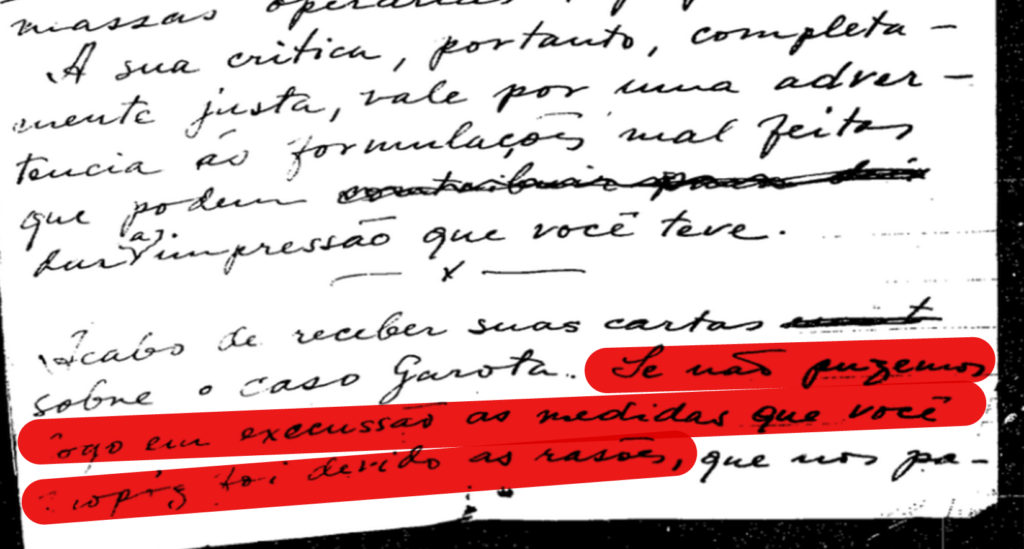 massas operarias
A sua critica, portanto, completa-
mente justa, vale por uma adver-
tencia ás formulações mal feitas
que podem contribuir para
as.
dar impressão que você teve.
— x —
Acabo de receber suas cartas
sobre o caso Garota. Se não puzemos
logo em execussão as medidas que você
propôz foi devido as rasões, que nos pa-